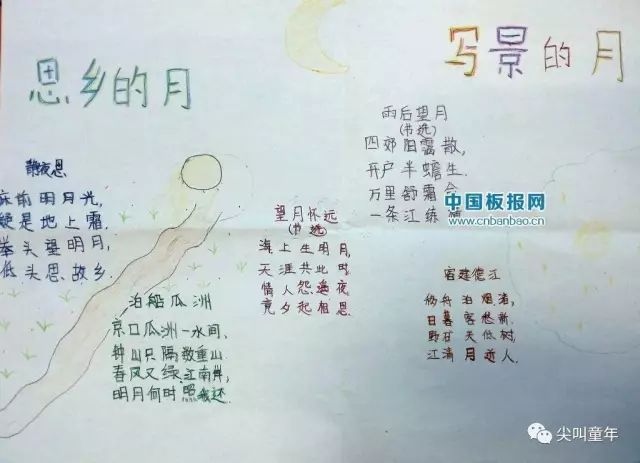 思乡的月
写景的月
静夜思
床前明月光,
疑是地上霜.
举头望明月,
低头思故乡.
泊船瓜洲
京口瓜洲一水间,
钟山只隔数重山.
春风又绿江南岸,
明月何时照我还.
望月怀远
(节选)
海上生明月,
天涯共此时.
情人怨遥夜,
竟夕起相思.
雨后望月
(节选)
四郊阴霭散,
开户半蟾生.
万里舒霜合
一条江练横
中国板报网
www.cnbanbao.cn
宿建德江
移舟泊烟渚,
日暮客愁新.
野旷天低树,
江清月近人.
尖叫童年